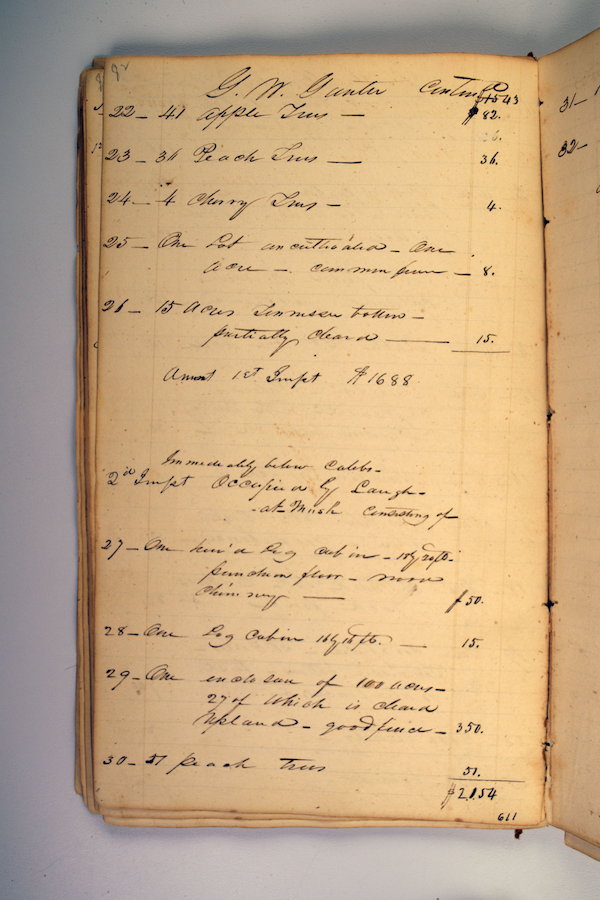 92
G. W. Gunter Continued $1543
22 - 41 apple Trees — $82.
23 - 36 Peach Trees — 36.
24 - 4 Cherry Trees - 4.
25 - One Lot uncultivated - One
acre - common fence - 8.
26 - 15 Acres Tennessee bottom -
partially cleard — 15.
Amnt 1st Impt $1688
Immediately below Calebs -
2d Impt Occupied by Laugh -
- at - Mush Consisting of
27 - One hew'd Log Cabin - 18 by 20 ft -
puncheon floor - wood
chimney — $50.
28 - One Log Cabin 16 by 16 ft. — 15.
29 - One enclosure of 100 acres -
27 of which is cleard
Upland - good fence - 350.
30 - 51 peach trees 51.
$2154
611
31 - 1
32 -